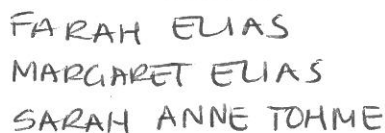 FARAH ELIAS
MARGARET ELIAS
SARAH ANNE TOHME